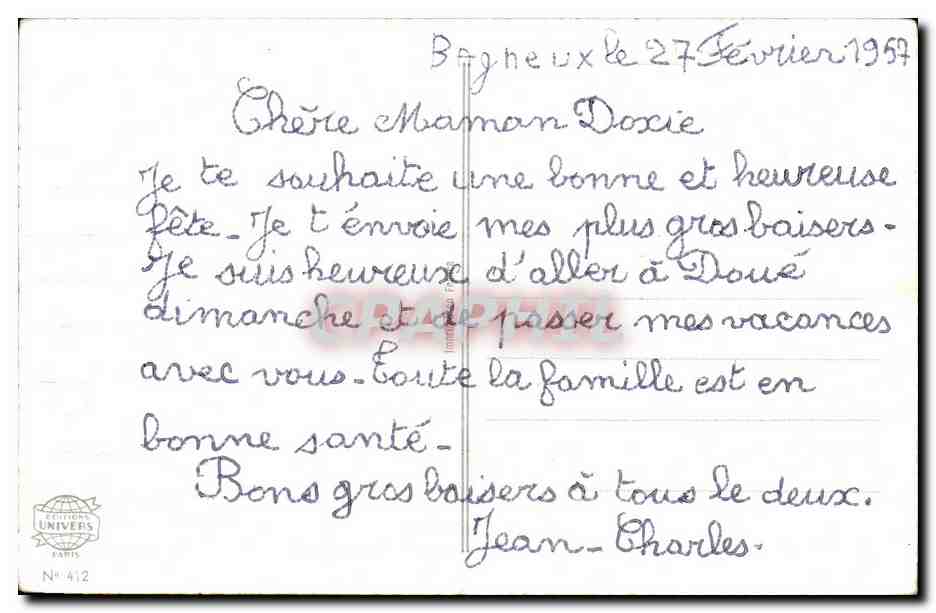 Bagneux le 27 Février 1957
Chère Maman Doxie
Je te souhaite une bonne et heureuse
fête - Je t'envoie mes plus gros baisers -
Je suis heureux d'aller à Doué
dimanche et de passer mes vacances
avec vous - Toute la famille est en
bonne santé -
Bons gros baisers à tous le deux.
Jean - Charles -
EDITIONS
UNIVERS
PARIS
No 412